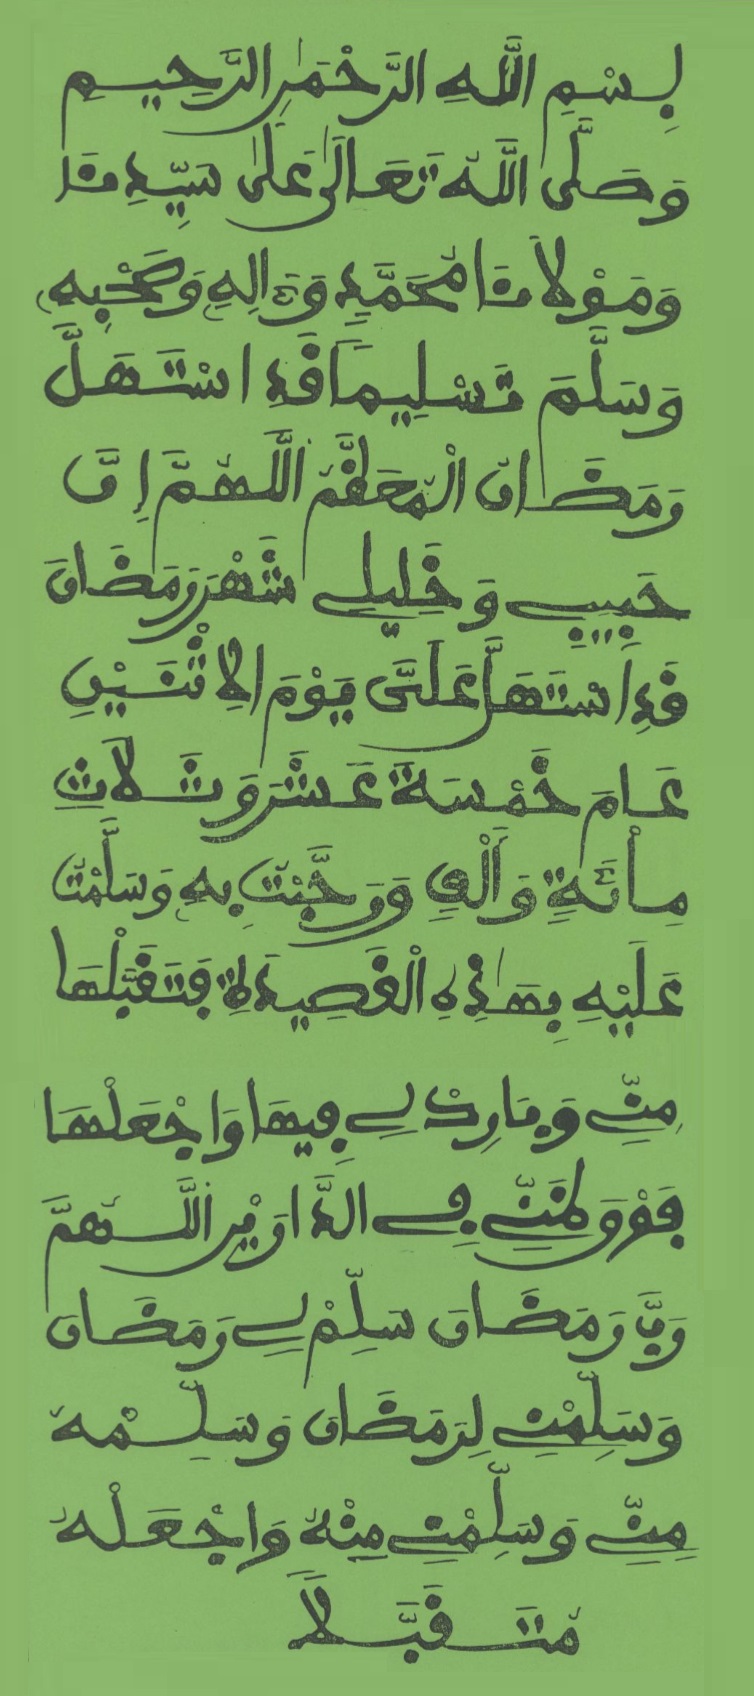 بِسْمِ اللَّهِ الرَّحْمَٰنِ الرَّحِيمِ
وَصَلَّى اللَّهُ تَعَالَىٰ عَلَىٰ سَيِّدِنَا
وَمَوْلَانَا مُحَمَّدٍ وَءَالِهِ وَصَحْبِهِ
وَسَلَّمَ تَسْلِيمًا قَدِ اسْتَهَلَّ
رَمَضَانُ الْمُعَظَّمُ اللَّهُمَّ إِنَّ
حَبِيبِي وَخَلِيلِي شَهْرَ رَمَضَانَ
قَدِ اسْتَهَلَّ عَلَيَّ يَوْمَ الِاثْنَيْنِ
عَامَ خَمْسَةَ عَشَرَ وَثَلَاثِ
مِائَةٍ وَأَلْفٍ وَرَحَّبْتُ بِهِ وَسَلَّمْتُ
عَلَيْهِ بِهَٰذِهِ الْقَصِيدَةِ فَتَقَبَّلْهَا
مِنِّي وَبَارِكْ لِي فِيهَا وَاجْعَلْهَا
فَوْقَ ظَنِّي فِي الدَّارَيْنِ اللَّهُمَّ
رَبَّ رَمَضَانَ سَلِّمْ لِي رَمَضَانَ
وَسَلِّمْنِي لِرَمَضَانَ وَسَلِّمْهُ
مِنِّي وَسَلِّمْنِي مِنْهُ وَاجْعَلْهُ
مُتَقَبَّلًا